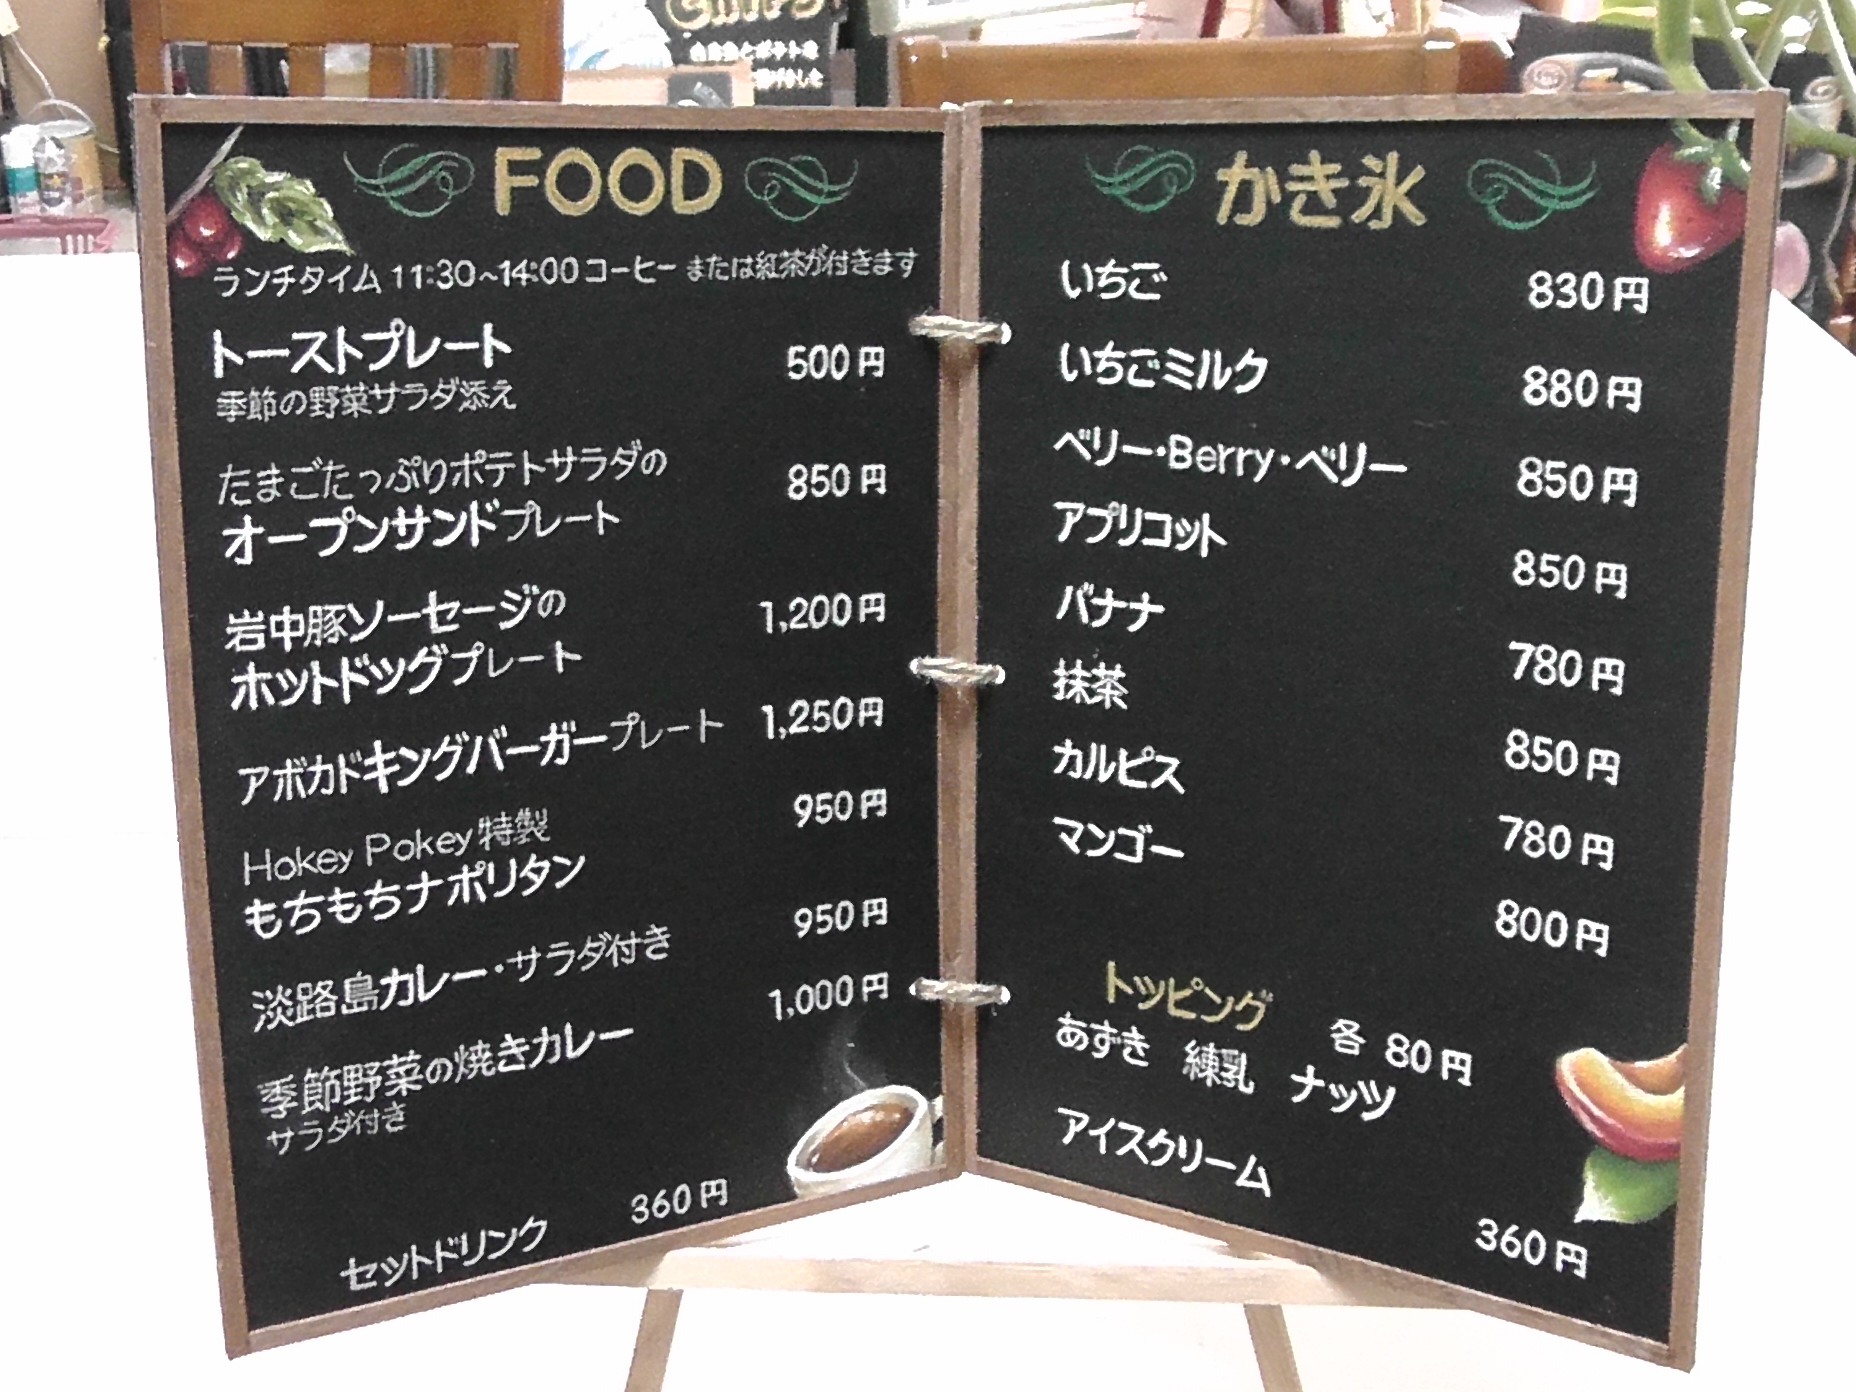 Chips
FOOD
ランチタイム 11:30~14:00 コーヒー または紅茶が付きます
トーストプレート 500円
季節の野菜サラダ添え
たまごたっぷりポテトサラダの 850円
オープンサンドプレート
岩中豚ソーセージの 1,200円
ホットドッグプレート
アボカドキングバーガープレート 1,250円
Hokey Pokey 特製 950円
もちもちナポリタン
淡路島カレー・サラダ付き 950円
季節野菜の焼きカレー 1,000円
サラダ付き
セットドリンク 360円
かき氷
いちご 830円
いちごミルク 880円
ベリー・Berry・ベリー 850円
アプリコット 850円
バナナ 780円
抹茶 850円
カルピス 780円
マンゴー 800円
トッピング 各 80円
あずき 練乳 ナッツ
アイスクリーム 360円